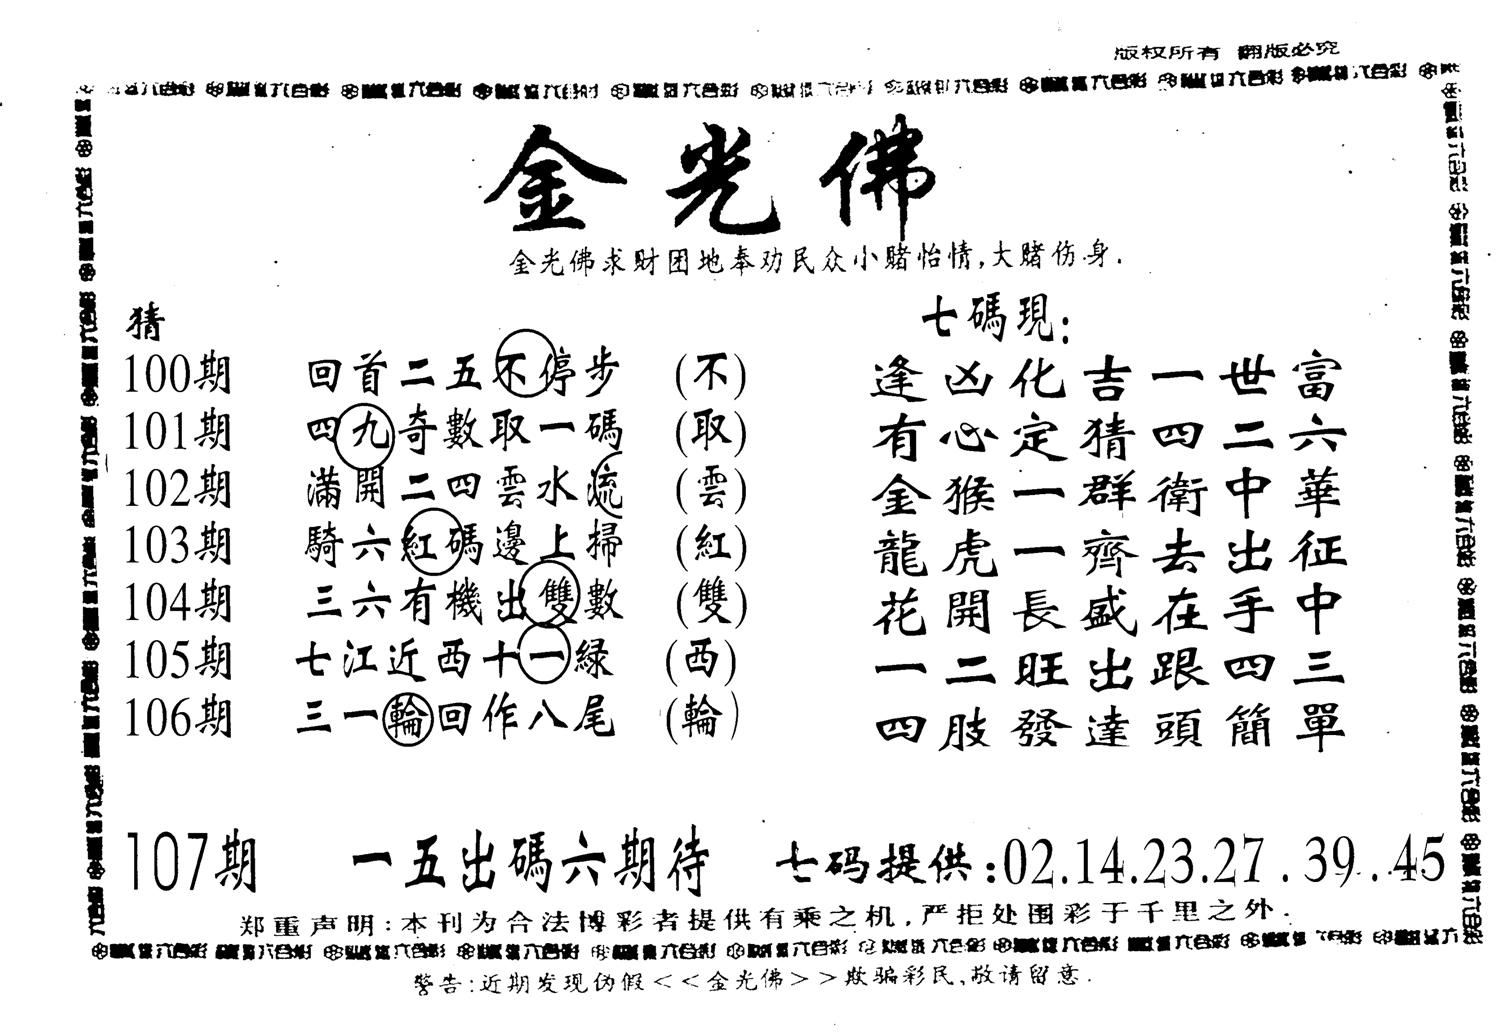 版权所有 翻版必究
金光佛
金光佛求财团地奉劝民众小赌怡情,大赌伤身.
猜
七碼現:
100期 回首二五不停步 (不) 逢凶化吉一世富
101期 四九奇數取一碼 (取) 有心定猜四二六
102期 滿開二四雲水流 (雲) 金猴一群衛中華
103期 騎六紅碼邊上掃 (紅) 龍虎一齊去出征
104期 三六有機出雙數 (雙) 花開長盛在手中
105期 七江近西十一緑 (西) 一二旺出跟四三
106期 三一輪回作八尾 (輪) 四肢發達頭簡單
107期 一五出碼六期待 七码提供:02.14.23.27.39..45
郑重声明:本刊为合法博彩者提供有乘之机,严拒处围彩于千里之外.
警告:近期发现伪假<<金光佛>>欺骗彩民,敬请留意.